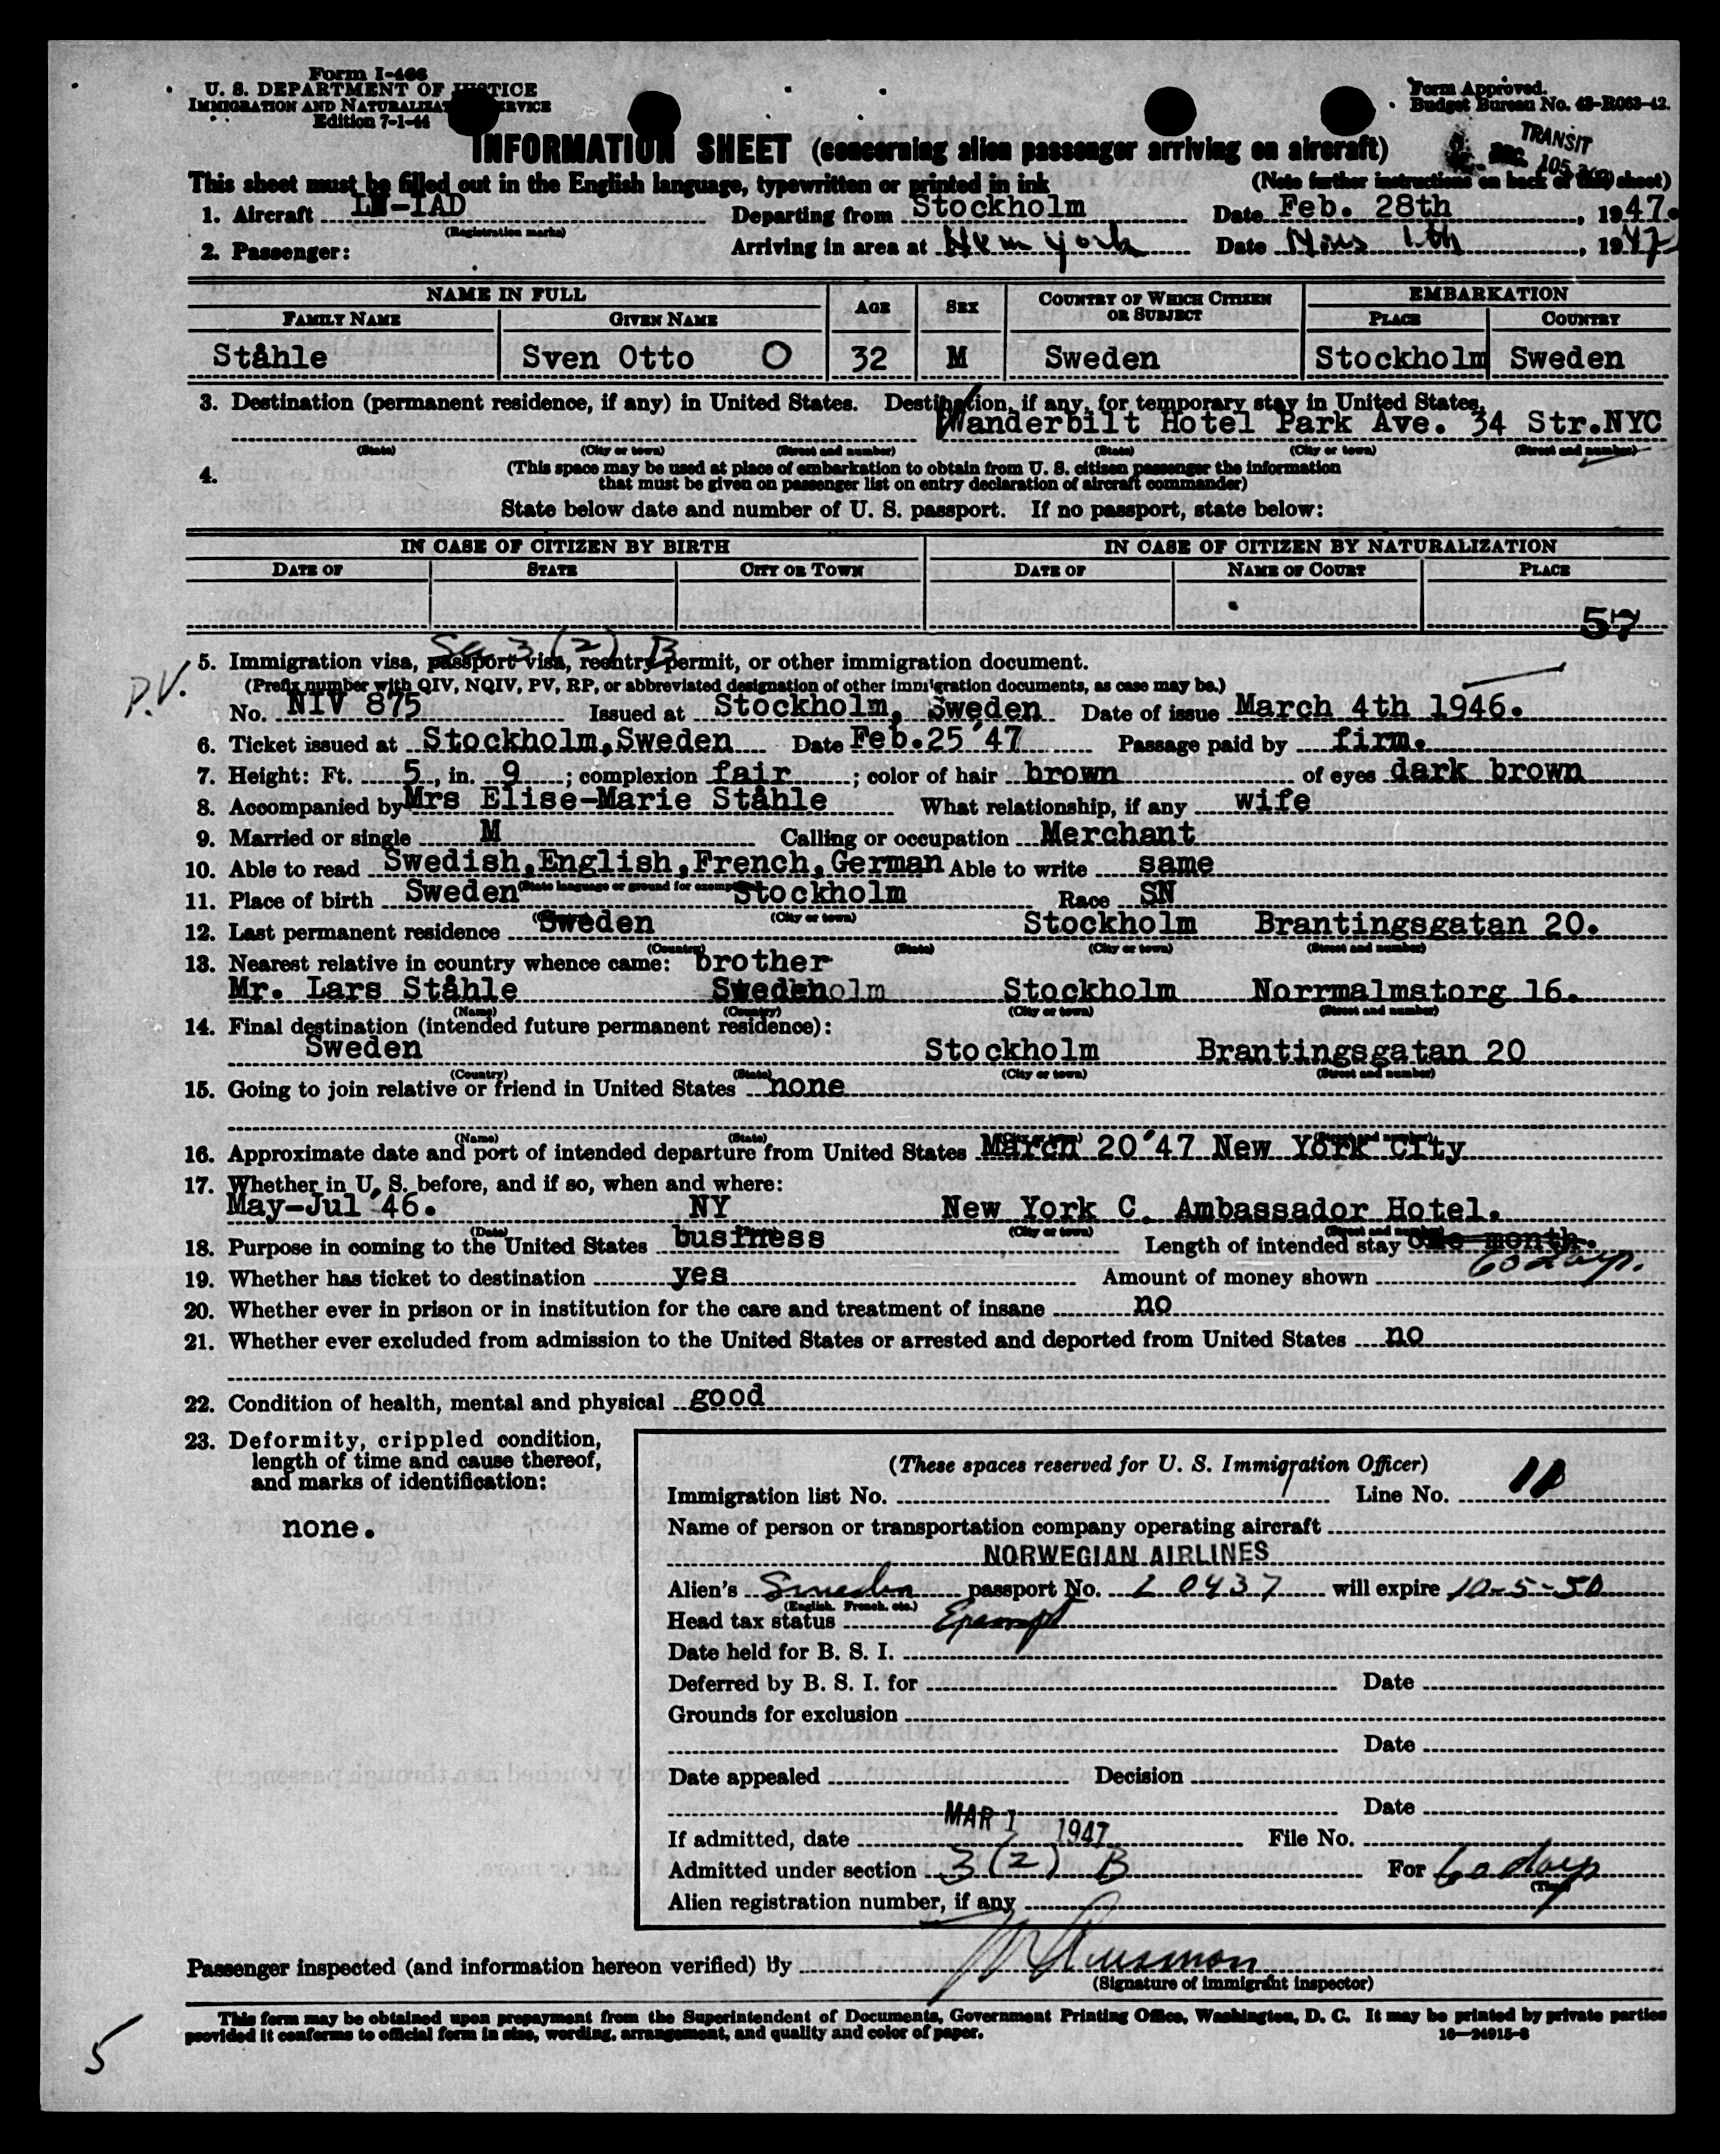 Form I-466
U. S. DEPARTMENT OF JUSTICE
IMMIGRATION AND NATURALIZATION SERVICE
Edition 7-1-44
Form Approved.
Budget Bureau No. 43-R063-42.
TRANSIT
INFORMATION SHEET (concerning alien passenger arriving on aircraft)
This sheet must be filled out in the English language, typewritten or printed in ink (Note further instructions on back of this sheet)
1. Aircraft LN-IAD Departing from Stockholm Date Feb. 28th, 1947.
(Registration marks)
2. Passenger: Arriving in area at New York Date Mars 1th, 1947
NAME IN FULL AGE SEX COUNTRY OF WHICH CITIZEN OR SUBJECT EMBARKATION
FAMILY NAME GIVEN NAME PLACE COUNTRY
Ståhle Sven Otto O 32 M Sweden Stockholm Sweden
3. Destination (permanent residence, if any) in United States. Destination, if any, for temporary stay in United States.
Wanderbilt Hotel Park Ave. 34 Str.NYC
(State) (City or town) (Street and number) (State) (City or town) (Street and number)
4. (This space may be used at place of embarkation to obtain from U. S. citizen passenger the information
that must be given on passenger list on entry declaration of aircraft commander)
State below date and number of U. S. passport. If no passport, state below:
IN CASE OF CITIZEN BY BIRTH IN CASE OF CITIZEN BY NATURALIZATION
DATE OF STATE CITY OR TOWN DATE OF NAME OF COURT PLACE
57
3 (2) B
5. Immigration visa, passport visa, reentry permit, or other immigration document.
P.V.
(Prefix number with QIV, NQIV, PV, RP, or abbreviated designation of other immigration documents, as case may be.)
No. NIV 875 Issued at Stockholm, Sweden Date of issue March 4th 1946.
6. Ticket issued at Stockholm,Sweden Date Feb.25 '47 Passage paid by firm.
7. Height: Ft. 5, in. 9; complexion fair; color of hair brown of eyes dark brown
8. Accompanied by Mrs Elise-Marie Ståhle What relationship, if any wife
9. Married or single M Calling or occupation Merchant
10. Able to read Swedish,English,French,German Able to write same
(State language or ground for exemption)
11. Place of birth Sweden Stockholm Race SN
(Country) (City or town)
12. Last permanent residence Sweden Stockholm Brantingsgatan 20.
(Country) (State) (City or town) (Street and number)
13. Nearest relative in country whence came: brother
Mr. Lars Ståhle Sweden Stockholm Norrmalmstorg 16.
(Name) (Country) (City or town) (Street and number)
14. Final destination (intended future permanent residence):
Sweden Stockholm Brantingsgatan 20
(Country) (State) (City or town) (Street and number)
15. Going to join relative or friend in United States none
(Name) (State) (City or town) (Street and number)
16. Approximate date and port of intended departure from United States March 20'47 New York City
17. Whether in U. S. before, and if so, when and where:
May-Jul '46. NY New York C. Ambassador Hotel.
(Date) (State) (City or town) (Street and number)
18. Purpose in coming to the United States business Length of intended stay one month.
60 days.
19. Whether has ticket to destination yes Amount of money shown
20. Whether ever in prison or in institution for the care and treatment of insane no
21. Whether ever excluded from admission to the United States or arrested and deported from United States no
22. Condition of health, mental and physical good
23. Deformity, crippled condition,
length of time and cause thereof,
and marks of identification:
none.
(These spaces reserved for U. S. Immigration Officer)
Immigration list No. Line No.
Name of person or transportation company operating aircraft
NORWEGIAN AIRLINES
Alien's Sweden passport No. L 0437 will expire 10-5-50
(English, French, etc.)
Head tax status Exempt
Date held for B. S. I.
Deferred by B. S. I. for Date
Grounds for exclusion
Date
Date appealed Decision
Date
If admitted, date MAR 1 1947 File No.
Admitted under section 3 (2) B For 60 days
(Time)
Alien registration number, if any
Passenger inspected (and information hereon verified) by
(Signature of immigrant inspector)
This form may be obtained upon prepayment from the Superintendent of Documents, Government Printing Office, Washington, D. C. It may be printed by private parties
provided it conforms to official form in size, wording, arrangement, and quality and color of paper. 16—24915-3
5